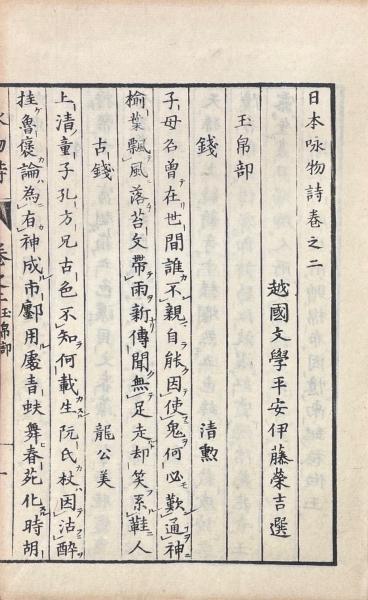 日本咏物詩卷之二
越國文學平安伊藤榮吉選
玉帛部
錢 清勲
子母名曾在世間誰不親自能因使鬼何必歎通神
榆葉飄風落苔文帶雨新傳聞無足走却笑系鞋人
古錢 龍公美
上清童子孔方兄古色不知何載生阮氏杖因沽醉
挂魯褒論為有神成市鄽用處青蚨舞春苑化時胡